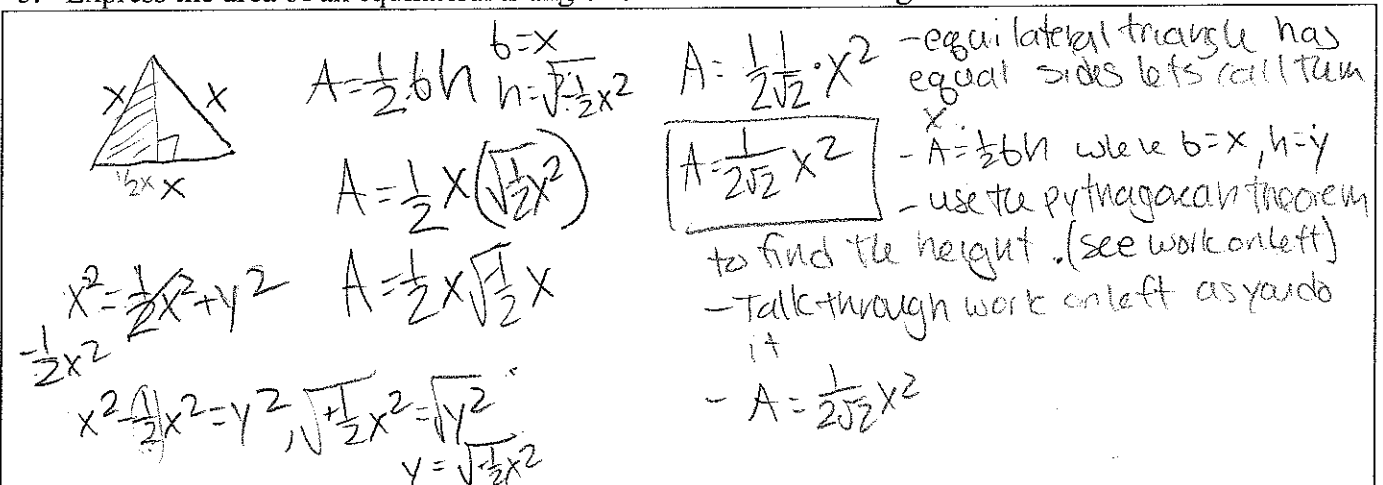 x x
1/2x x
x² = 1/2x² + y²
-1/2x²
x² - 1/2x² = y², √+1/2x² = √y²
y = √-1/2x²
A = 1/2 · bh b=x
h = √1/2x²
A = 1/2 x(√1/2x²)
A = 1/2 x√1/2 x
A = 1/2 1/√2 · x²
A = 1/2√2 x²
- equilateral triangle has
equal sides lets call tum
x.
- A = 1/2bh where b=x, h=y
- use the pythagorean theorem
to find the height. (see work on left)
- Talk through work on left as you do
it
- A = 1/2√2 x²